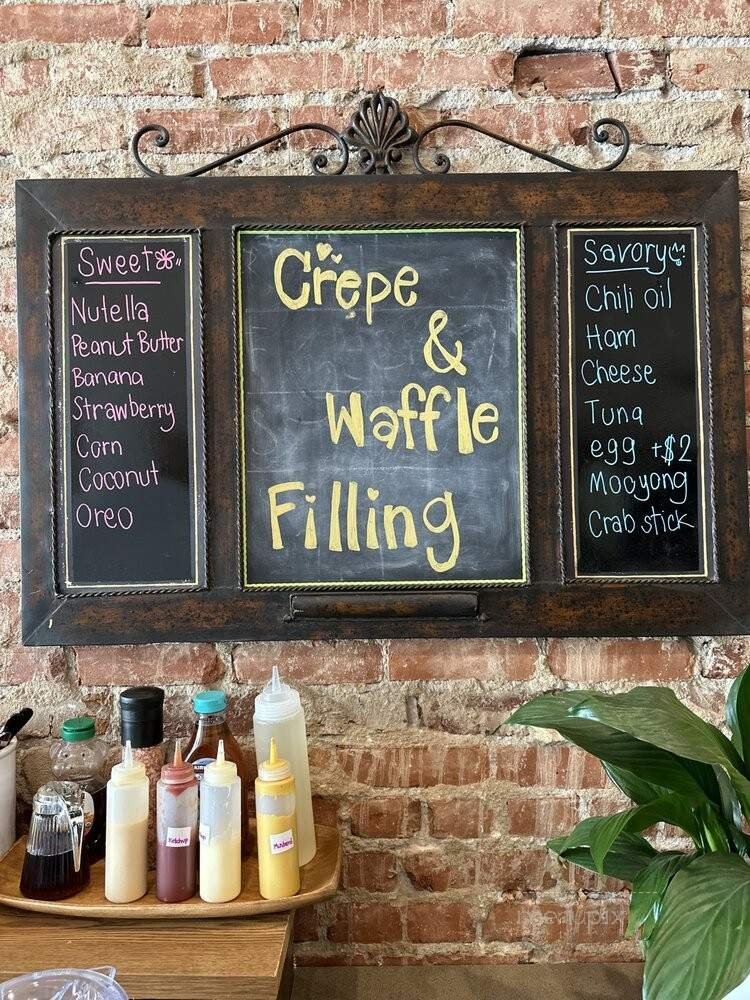 Sweet
Nutella
Peanut Butter
Banana
Strawberry
Corn
Coconut
Oreo
Crepe
&
Waffle
Filling
Savory
Chili oil
Ham
Cheese
Tuna
egg +$2
Mooyong
Crab stick
Ketchup